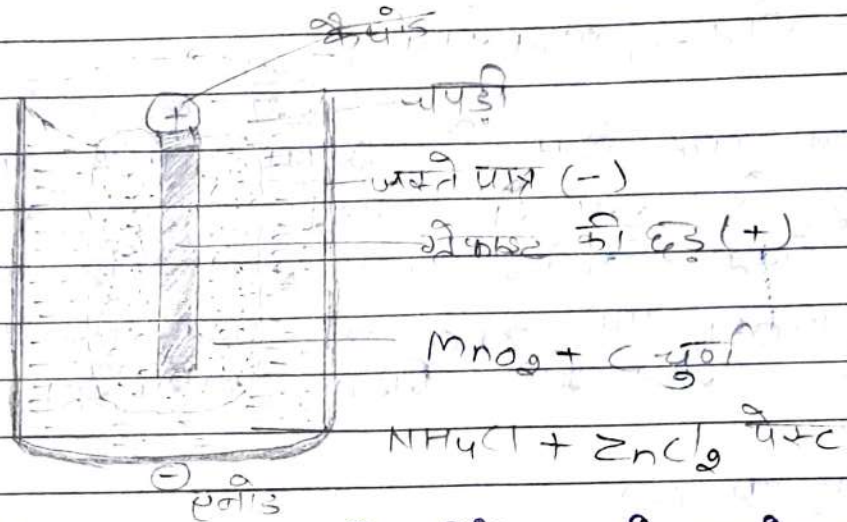 कैथोड
+
चपड़ी
जस्ते पात्र (-)
ग्रेफाइट की छड़ (+)
MnO2 + C चूर्ण
NH4Cl + ZnCl2 पेस्ट
-
एनोड